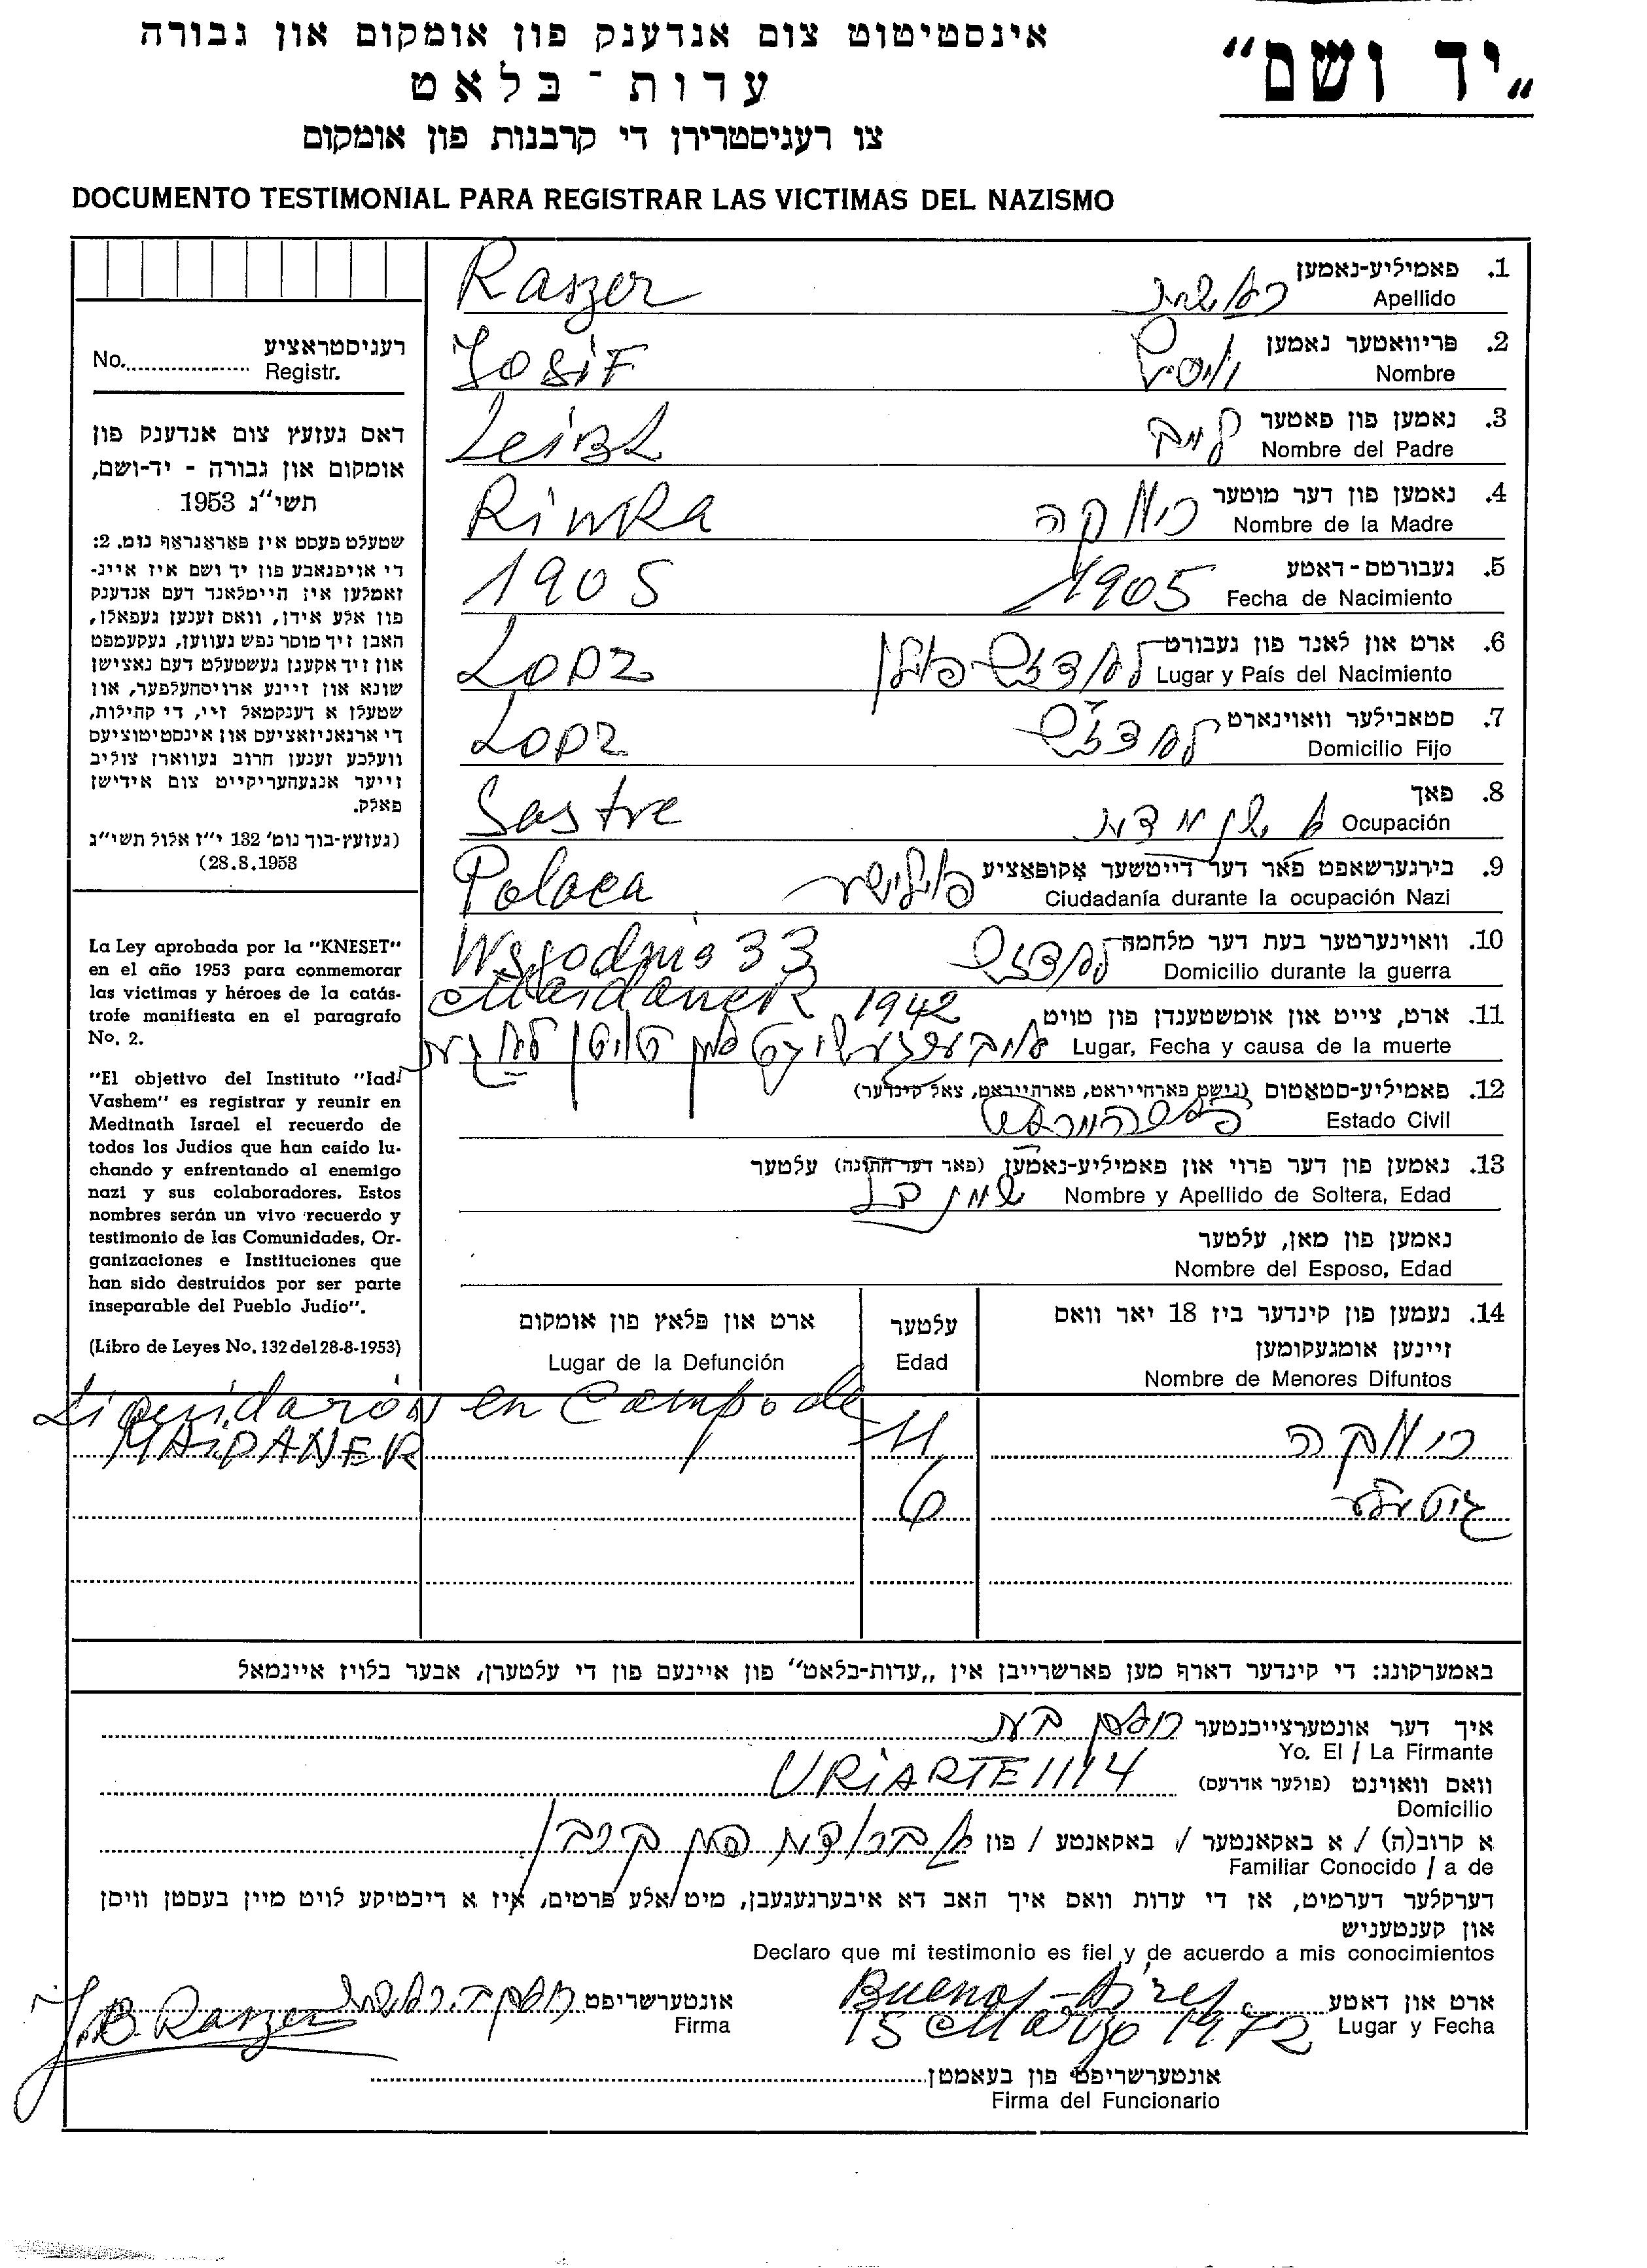 „יד ושם“
אינסטיטוט צום אנדענק פון אומקום און גבורה
עדות-בלאט
צו רעגיסטרירן די קרבנות פון אומקום
DOCUMENTO TESTIMONIAL PARA REGISTRAR LAS VICTIMAS DEL NAZISMO
No. רעגיסטראציע
Registr.
דאס געזעץ צום אנדענק פון
אומקום און גבורה - יד-ושם,
תשי״ג 1953
שטעלט פעסט אין פאראגראף נומ. 2:
די אויפגאבע פון יד ושם איז איינ-
זאמלען אין היימלאנד דעם אנדענק
פון אלע אידן, וואס זענען געפאלן,
האבן זיך מוסר נפש געווען, געקעמפט
און זיך אקעגן געשטעלט דעם נאצישן
שונא און זיינע ארויסהעלפער, און
שטעלן א דענקמאל זיי, די קהילות,
די ארגאניזאציעס און אינסטיטוציעס
וועלכע זענען חרוב געווארן צוליב
זייער אנגעהעריקייט צום אידישן
פאלק.
(געזעץ-בוך נומ׳ 132 י״ז אלול תשי״ג
28.8.1953)
La Ley aprobada por la "KNESET"
en el año 1953 para conmemorar
las victimas y héroes de la catás-
trofe manifiesta en el paragrafo
No. 2.
"El objetivo del Instituto "Iad-
Vashem" es registrar y reunir en
Medinath Israel el recuerdo de
todos los Judios que han caído lu-
chando y enfrentando al enemigo
nazi y sus colaboradores. Estos
nombres serán un vivo recuerdo y
testimonio de las Comunidades, Or-
ganizaciones e Instituciones que
han sido destruídos por ser parte
inseparable del Pueblo Judío".
(Libro de Leyes No. 132 del 28-8-1953)
1. פאמיליע-נאמען
Apellido
Raszer
2. פריוואטער נאמען
Nombre
יוסיף
Josif
3. נאמען פון פאטער
Nombre del Padre
לייב
4. נאמען פון דער מוטער
Nombre de la Madre
ריווקה
Riwka
5. געבורטס-דאטע
Fecha de Nacimiento
1905
1905
6. ארט און לאנד פון געבורט
Lugar y País del Nacimiento
לאדזש פוילן
Lodz
7. סטאבילער וואוינארט
Domicilio Fijo
לאדזש
Lodz
8. פאך
Ocupación
א שניידער
Sastre
9. בירגערשאפט פאר דער דייטשער אקופאציע
Ciudadanía durante la ocupación Nazi
פוילישער
Polaca
10. וואוינערטער בעת דער מלחמה
Domicilio durante la guerra
לאדזש
33
11. ארט, צייט און אומשטענדן פון טויט
Lugar, Fecha y causa de la muerte
Maidanek 1942
12. פאמיליע-סטאטוס (נישט פארהייראט, פארהייראט, צאל קינדער)
Estado Civil
פארהייראט
13. נאמען פון דער פרוי און פאמיליע-נאמען (פאר דער חתונה) עלטער
Nombre y Apellido de Soltera, Edad
נאמען פון מאן, עלטער
Nombre del Esposo, Edad
14. נעמען פון קינדער ביז 18 יאר וואס
זיינען אומגעקומען
Nombre de Menores Difuntos
עלטער
Edad
ארט און פלאץ פון אומקום
Lugar de la Defunción
ריווקה
11
en Campo de
MAIDANEK
גיטעלע
6
באמערקונג: די קינדער דארף מען פארשרייבן אין „עדות-בלאט“ פון איינעם פון די עלטערן, אבער בלויז איינמאל
איך דער אונטערצייכנטער
Yo. El / La Firmante
וואס וואוינט (פולער אדרעס)
Domicilio
URIARTE 1114
א קרוב(ה) / א באקאנטער / באקאנטע / פון
Familiar Conocido / a de
דערקלער דערמיט, אז די עדות וואס איך האב דא איבערגעגעבן, מיט אלע פרטים, איז א ריכטיקע לויט מיין בעסטן וויסן
און קענטעניש
Declaro que mi testimonio es fiel y de acuerdo a mis conocimientos
ארט און דאטע
Lugar y Fecha
Buenos-Aires
15 Marzo 1972
אונטערשריפט
Firma
J.B. Raszer
אונטערשריפט פון בעאמטן
Firma del Funcionario